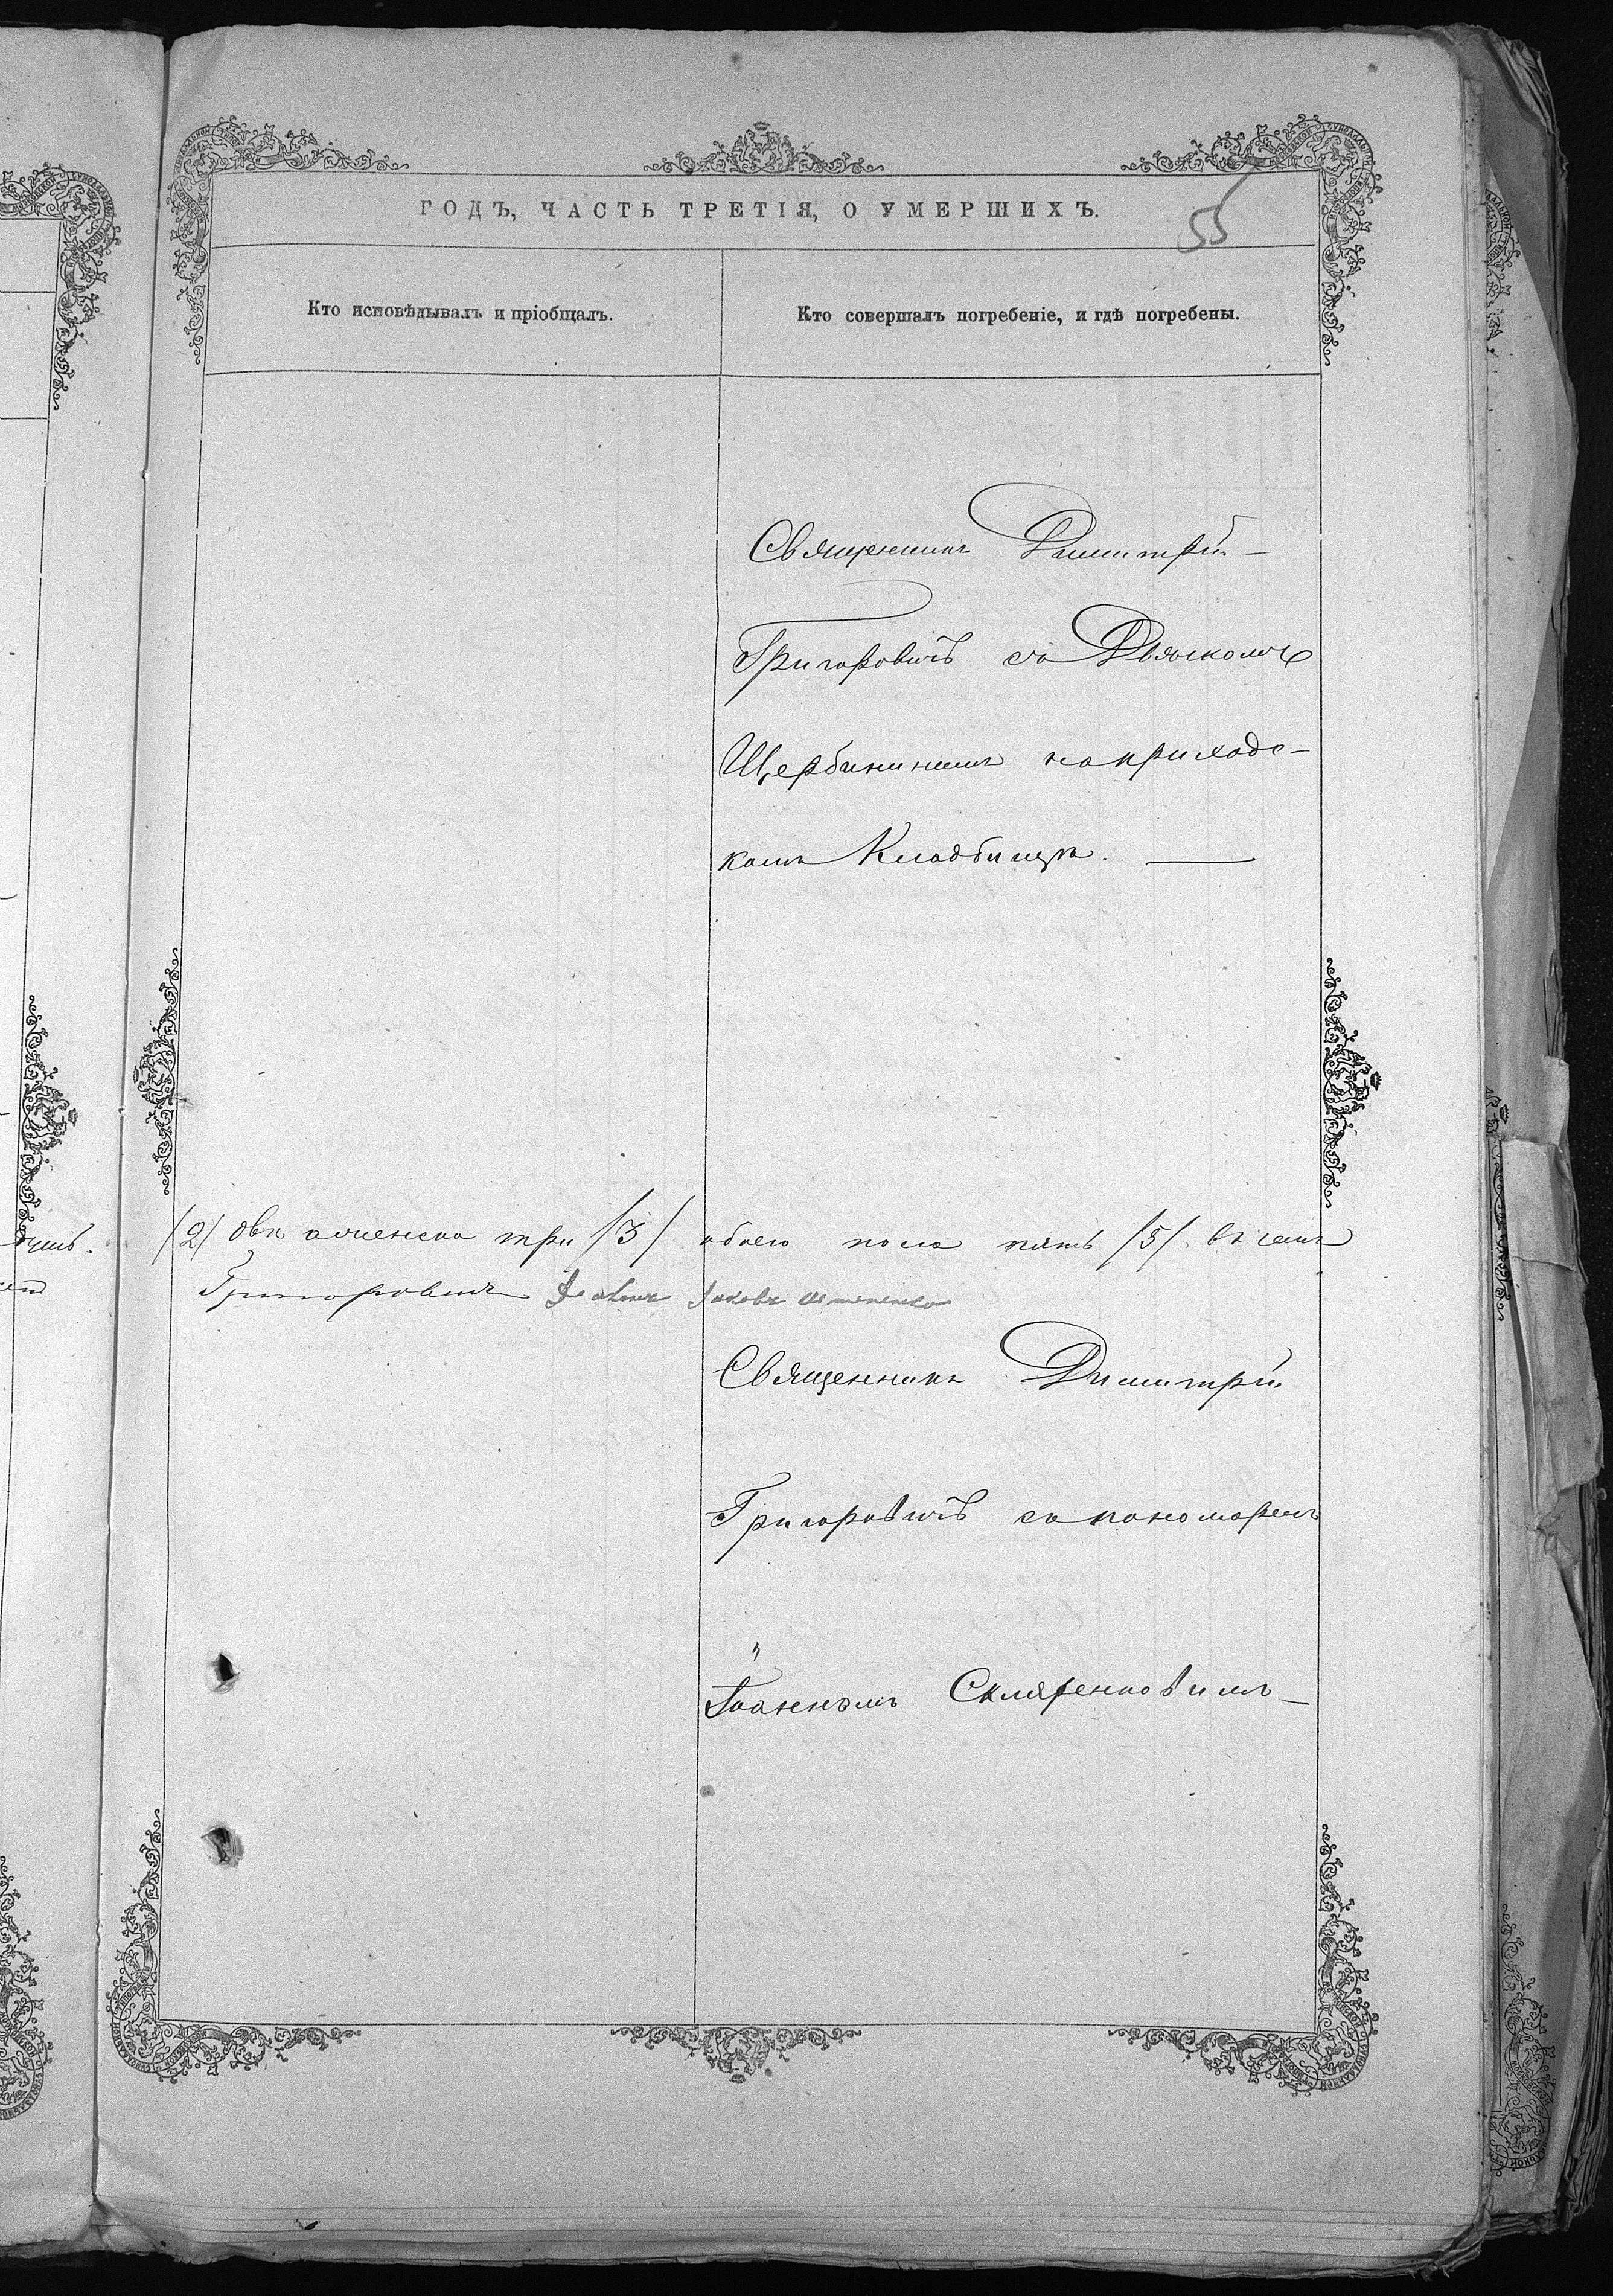 ГОДЪ, ЧАСТЬ ТРЕТІЯ, О УМЕРШИХЪ.
55
Кто исповѣдывалъ и пріобщалъ.
Кто совершалъ погребеніе, и гдѣ погребены.
Священникъ Димитрій
Григоровичъ съ Дьякомъ
Щербининимъ на приходс-
комъ Кладбищѣ.
/2/ двѣ а женска три /3/ обоего пола пять /5/. въ чемъ
Григоровичъ Дьяконъ Яковъ
Священникъ Димитрій
Григоровичъ съ пономаремъ
Іоанномъ Скляренковимъ